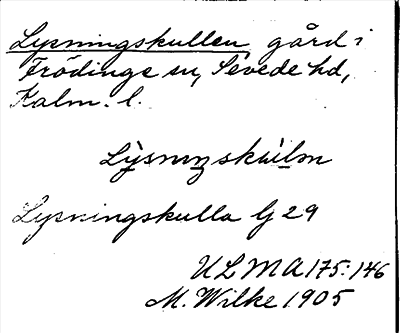 Lysningskullen gård i
Frödinge sn, Sevede hd,
Kalm. l.
Lysnıŋskulən
Lysningskulla G 29
ULMA 175:146
M. Wilke 1905